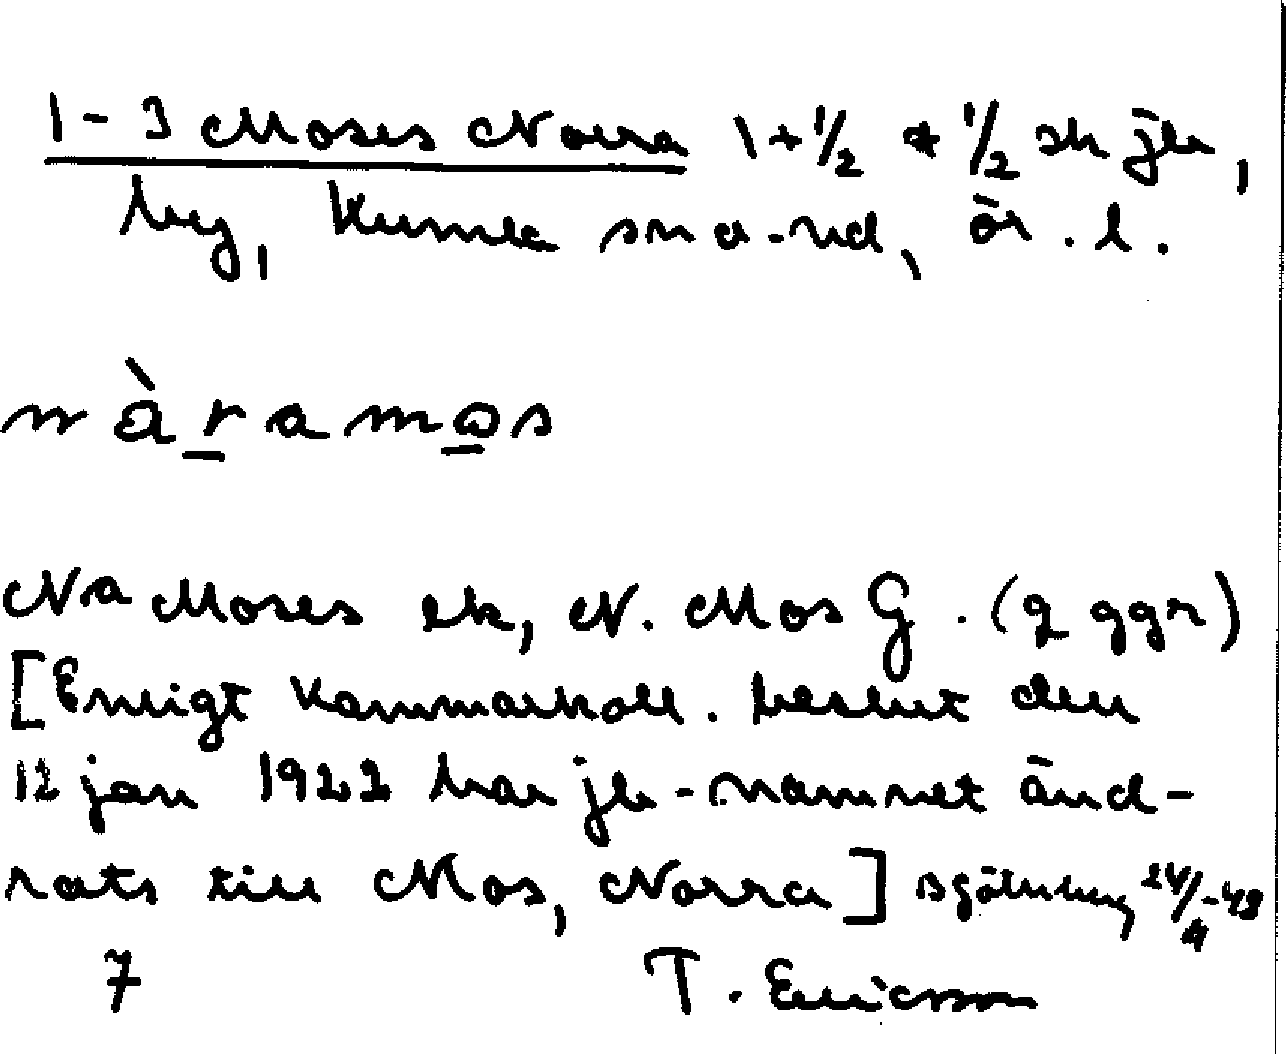 1-3 Moses Norra 1+1/2 + 1/2 sk jb,
by, Kumla sn o-nd, ör. l.
nàramos
Na Moses ek, N. Mos G. (2 ggr)
[Enligt Kammarkoll. beslut den
12 jan 1922 har jb-namnet änd-
rats till Mos, Norra] 24/4-48
7 T. Ericsson